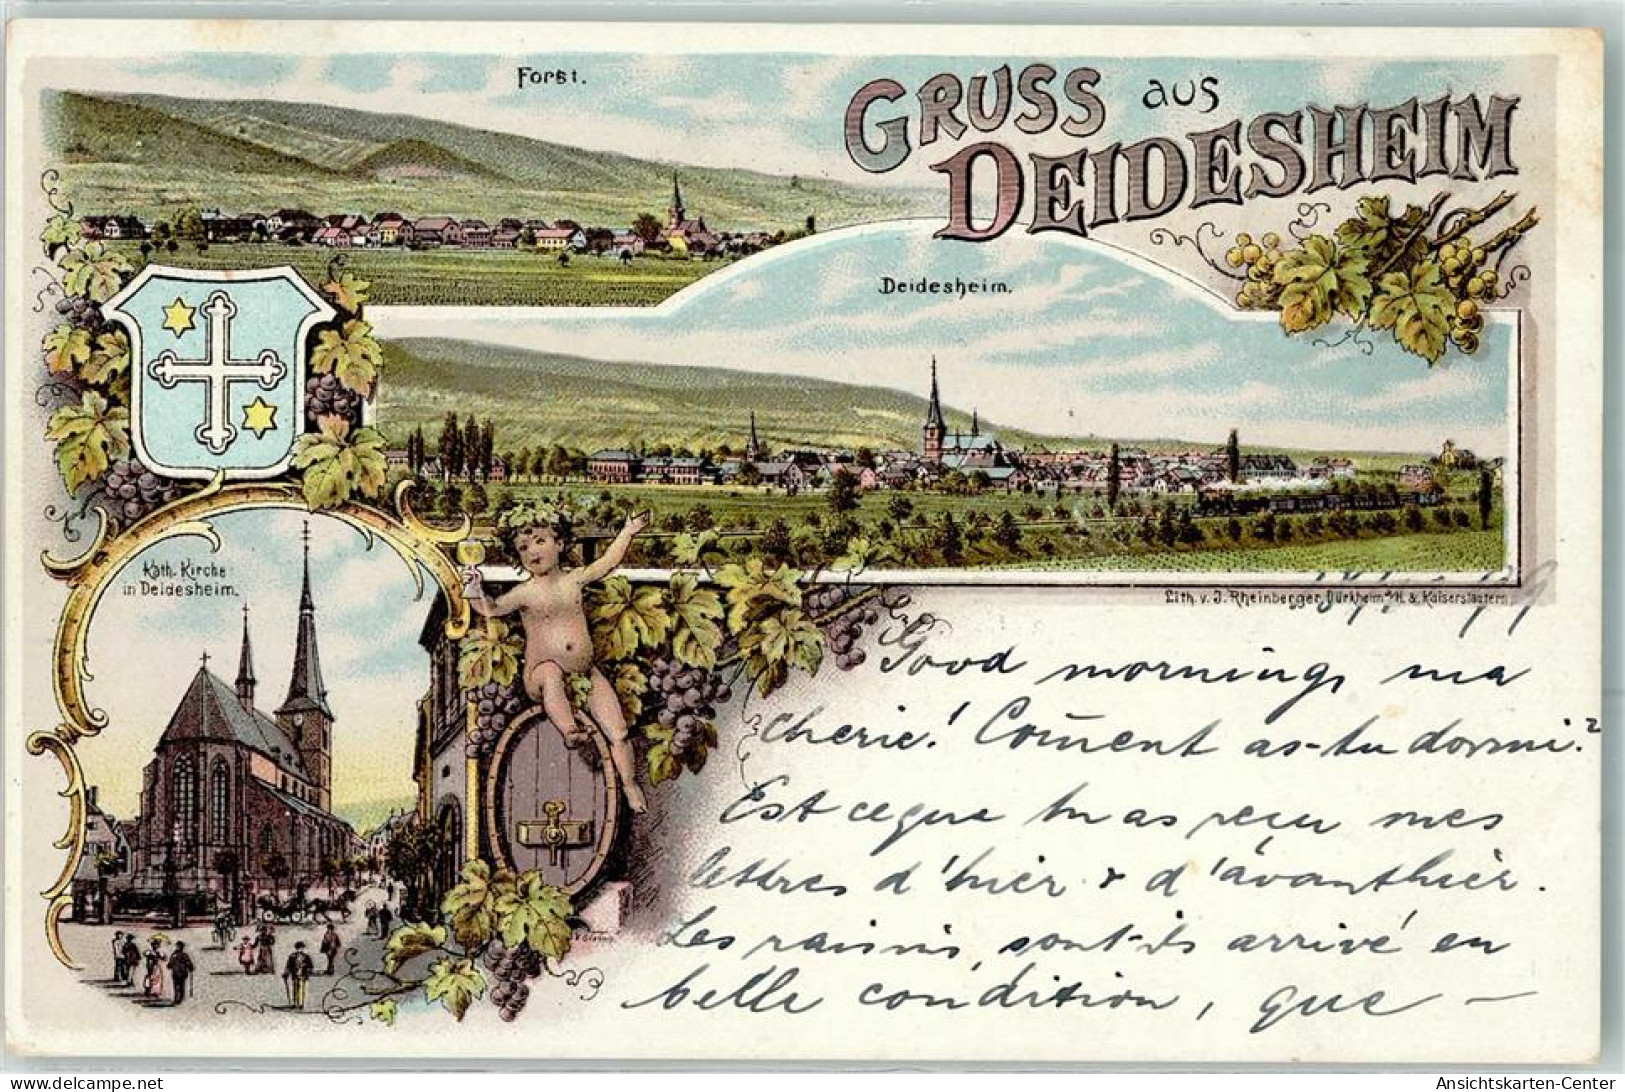 Forst.
GRUSS aus
DEIDESHEIM
Deidesheim.
Kath. Kirche
in Deidesheim.
Lith. v. J. Rheinberger, Dürkheim a/H. & Kaiserslautern
Good morning, ma
cherie! Com̄ent as-tu dormi?
Est ceque tu as reçu mes
lettres d'hier & d'avanthier.
Les raisins, sont-ils arrivé en
belle condition, que –
Ansichtskarten-Center